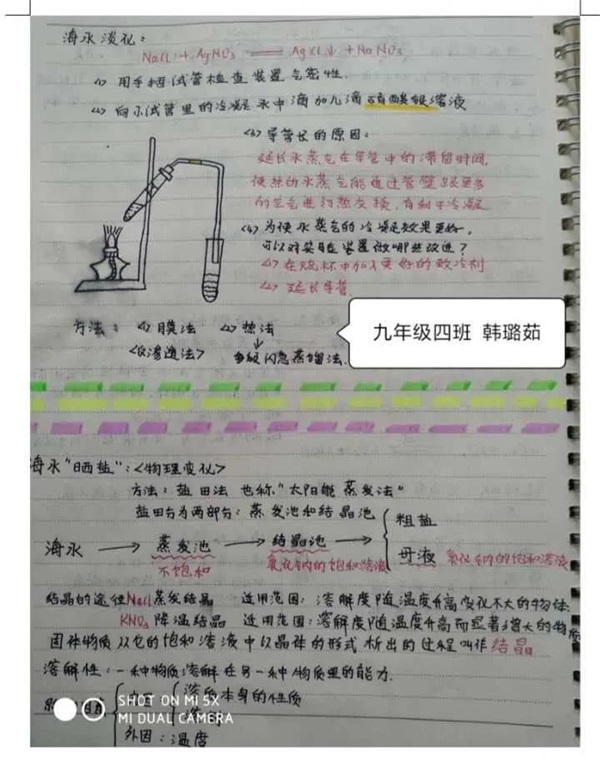 海水淡化:
NaCl + AgNO₃ === AgCl↓ + NaNO₃
(1) 用手捂试管检查装置气密性.
(2) 向小试管里的冷凝水中滴加几滴硝酸银溶液
(3) 导管长的原因:
延长水蒸气在导管中的滞留时间,
使热的水蒸气能通过管壁跟更多
的空气进行热交换,有利于冷凝
(4) 为使水蒸气的冷凝效果更好,
可以对装置做哪些改进?
(1) 在烧杯中加入更好的致冷剂
(2) 延长导管
方法: (1) 膜法 (2) 热法
<反渗透法> 多级闪急蒸馏法.
九年级四班 韩璐茹
海水“晒盐”:<物理变化>
方法:盐田法 也称“太阳能蒸发法”
盐田分为两部分:蒸发池和结晶池
粗盐
海水 → 蒸发池 → 结晶池 →
母液 氯化钠的饱和溶液
不饱和 氯化钠的饱和溶液
结晶的途径 NaCl 蒸发结晶 适用范围:溶解度随温度升高变化不大的物体
KNO₃ 降温结晶 适用范围:溶解度随温度升高而显著增大的物质
固体物质从它的饱和溶液中以晶体的形式析出的过程叫作结晶
溶解性:一种物质溶解在另一种物质里的能力.
溶质本身的性质
SHOT ON MI 5X
MI DUAL CAMERA
外因:温度